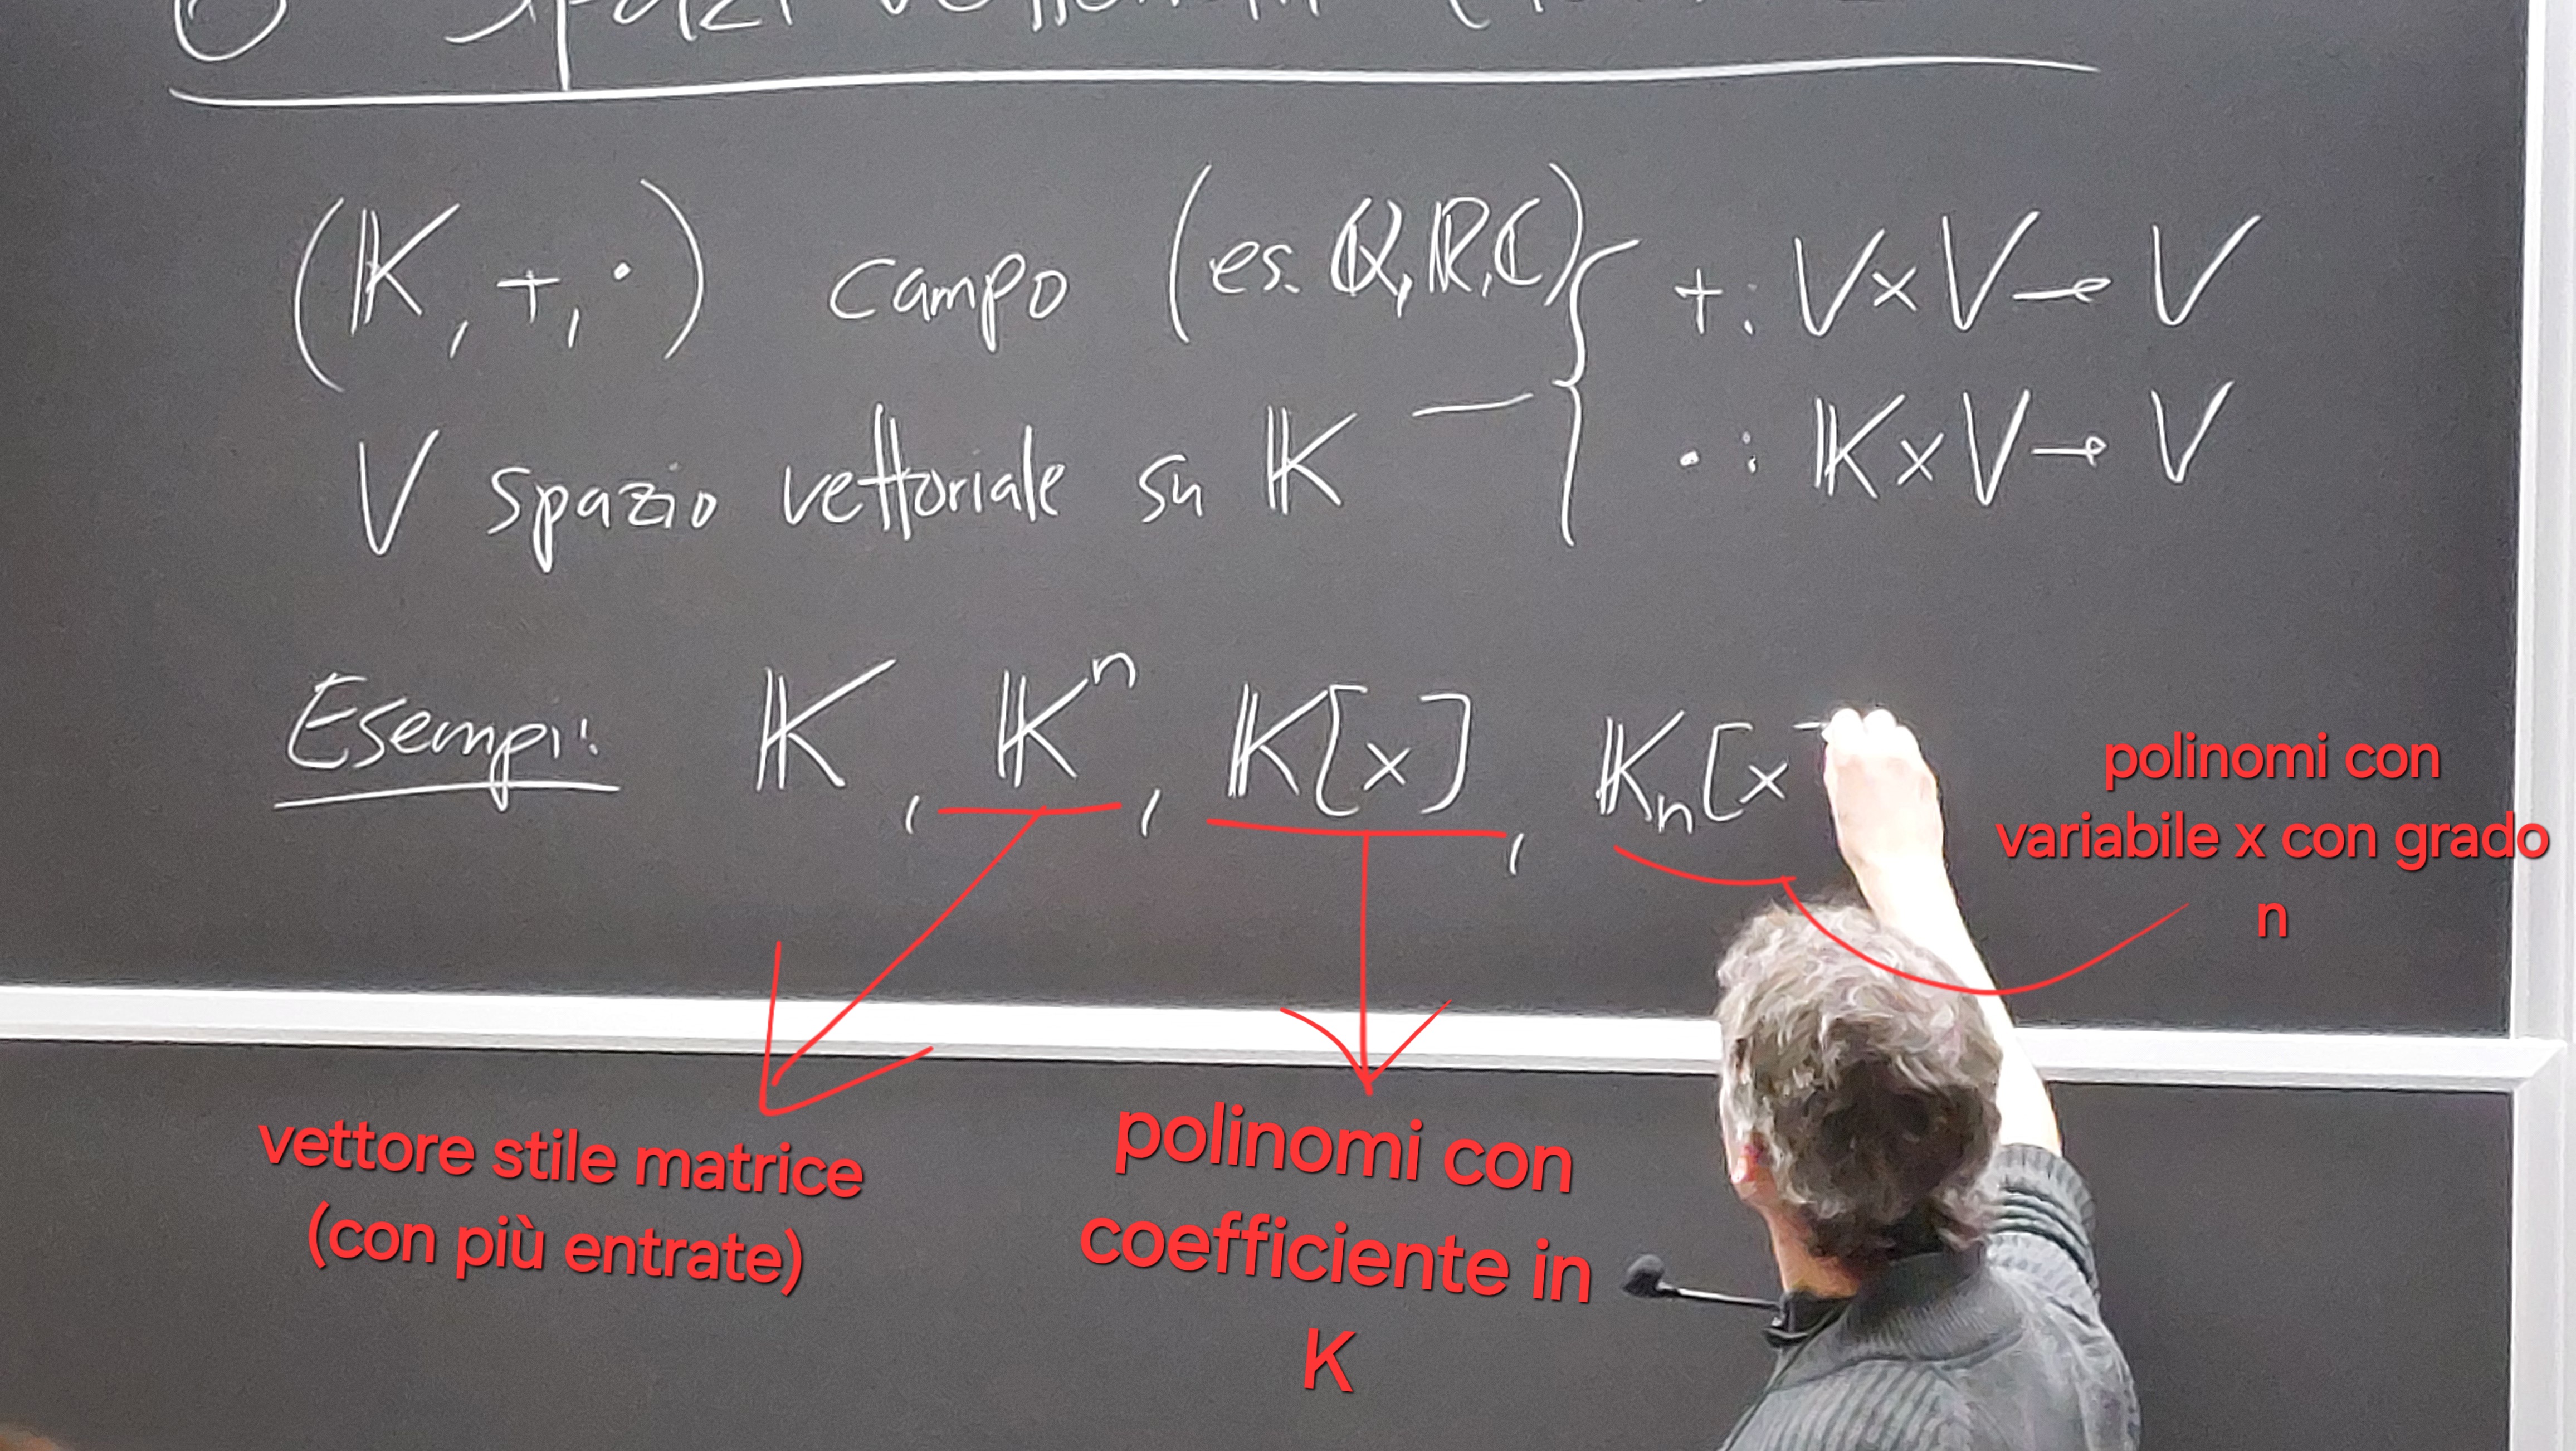 spazi vettoriali
(𝕂, +, ·) campo (es. ℚ, ℝ, ℂ) { +: V×V → V
V spazio vettoriale su 𝕂 — { ·: 𝕂×V → V
Esempi: 𝕂, 𝕂ⁿ, 𝕂[x], 𝕂ₙ[x
polinomi con
variabile x con grado
n
vettore stile matrice
(con più entrate)
polinomi con
coefficiente in
K